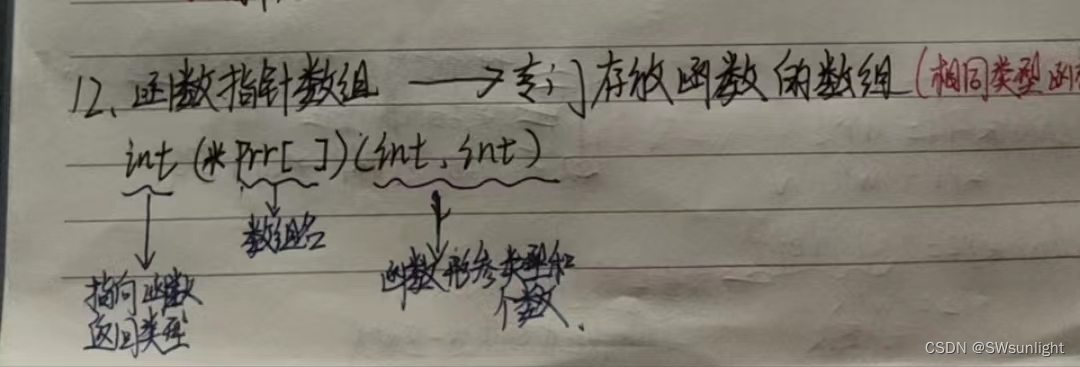 12、函数指针数组 → 专门存放函数的数组(相同类型函
int (*Prr[ ])(int, int)
数组名
指向函数
返回类型
函数形参类型和
个数.
CSDN @SWsunlight